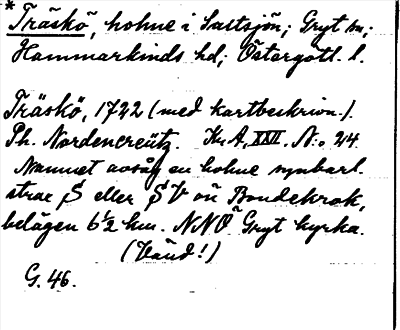 *Träskö, holme i Saltsjön; Gryt sn;
Hammarkinds hd; Östergötl. l.
Träskö, 1722 (med kartbeskrivn.).
Ph. Nordencreütz. Kr. A. XXII. N:o 24.
Namnet avsåg en holme synbarl.
strax S eller SV om Bondekrok,
belägen 6½ km. NNÖ Gryt kyrka.
(Vänd!)
G. 46.